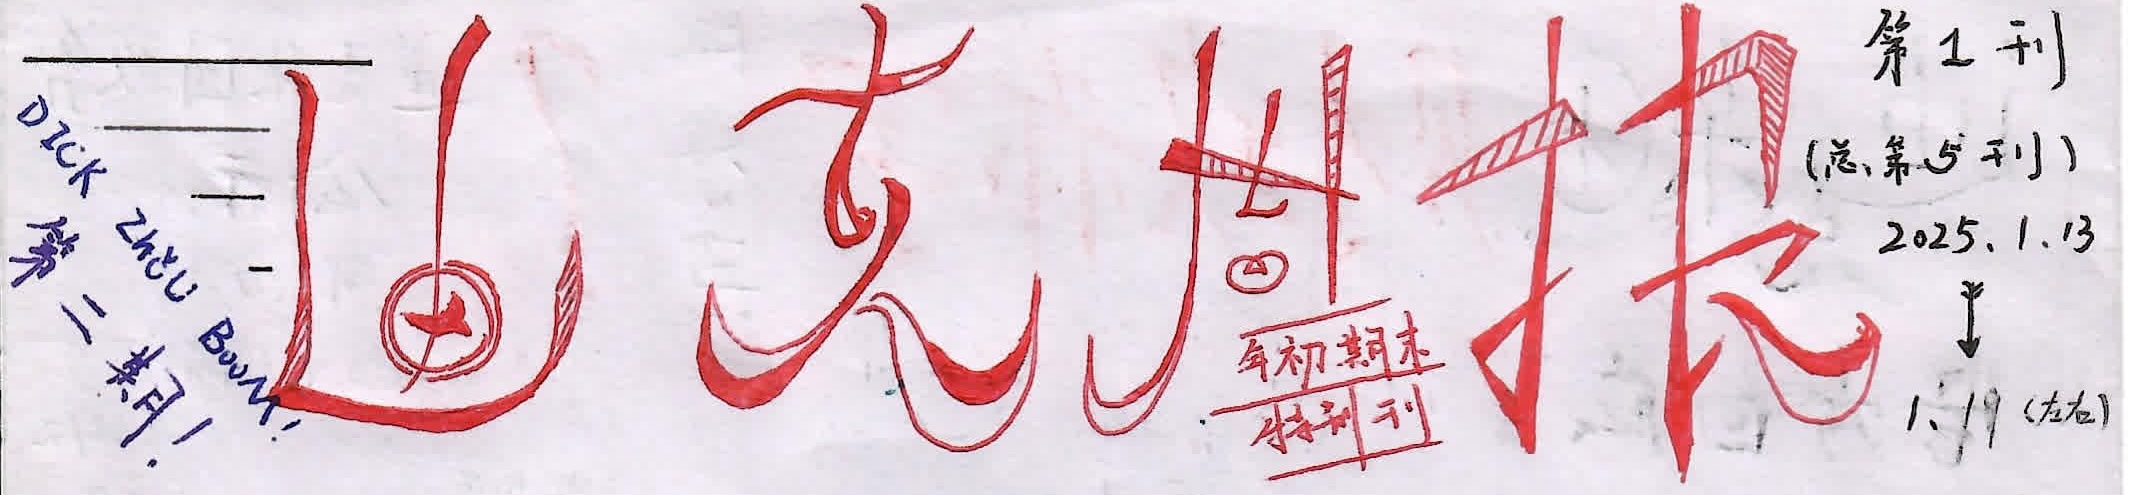 DICK
ZhōU
BOOM!
第二期!
迪克周报
年初期末
特别刊
第1刊
(总第5刊)
2025.1.13
↓
1.19(左右)